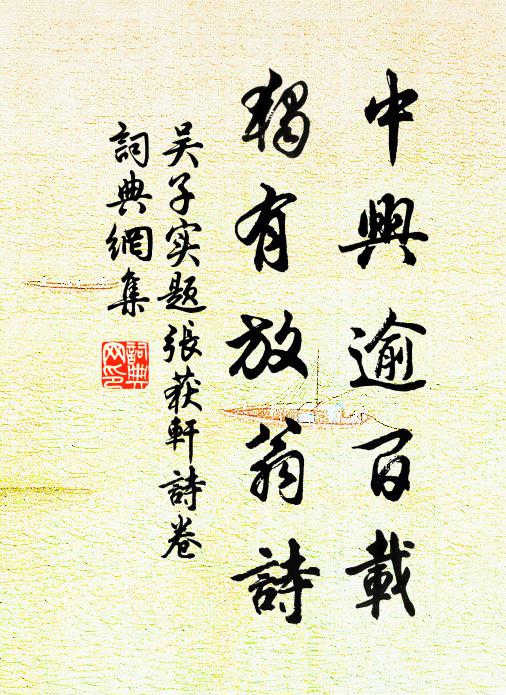 中興逾百載
獨有放翁詩
吴子实题張荻軒詩卷
詞典網集
詞典網印